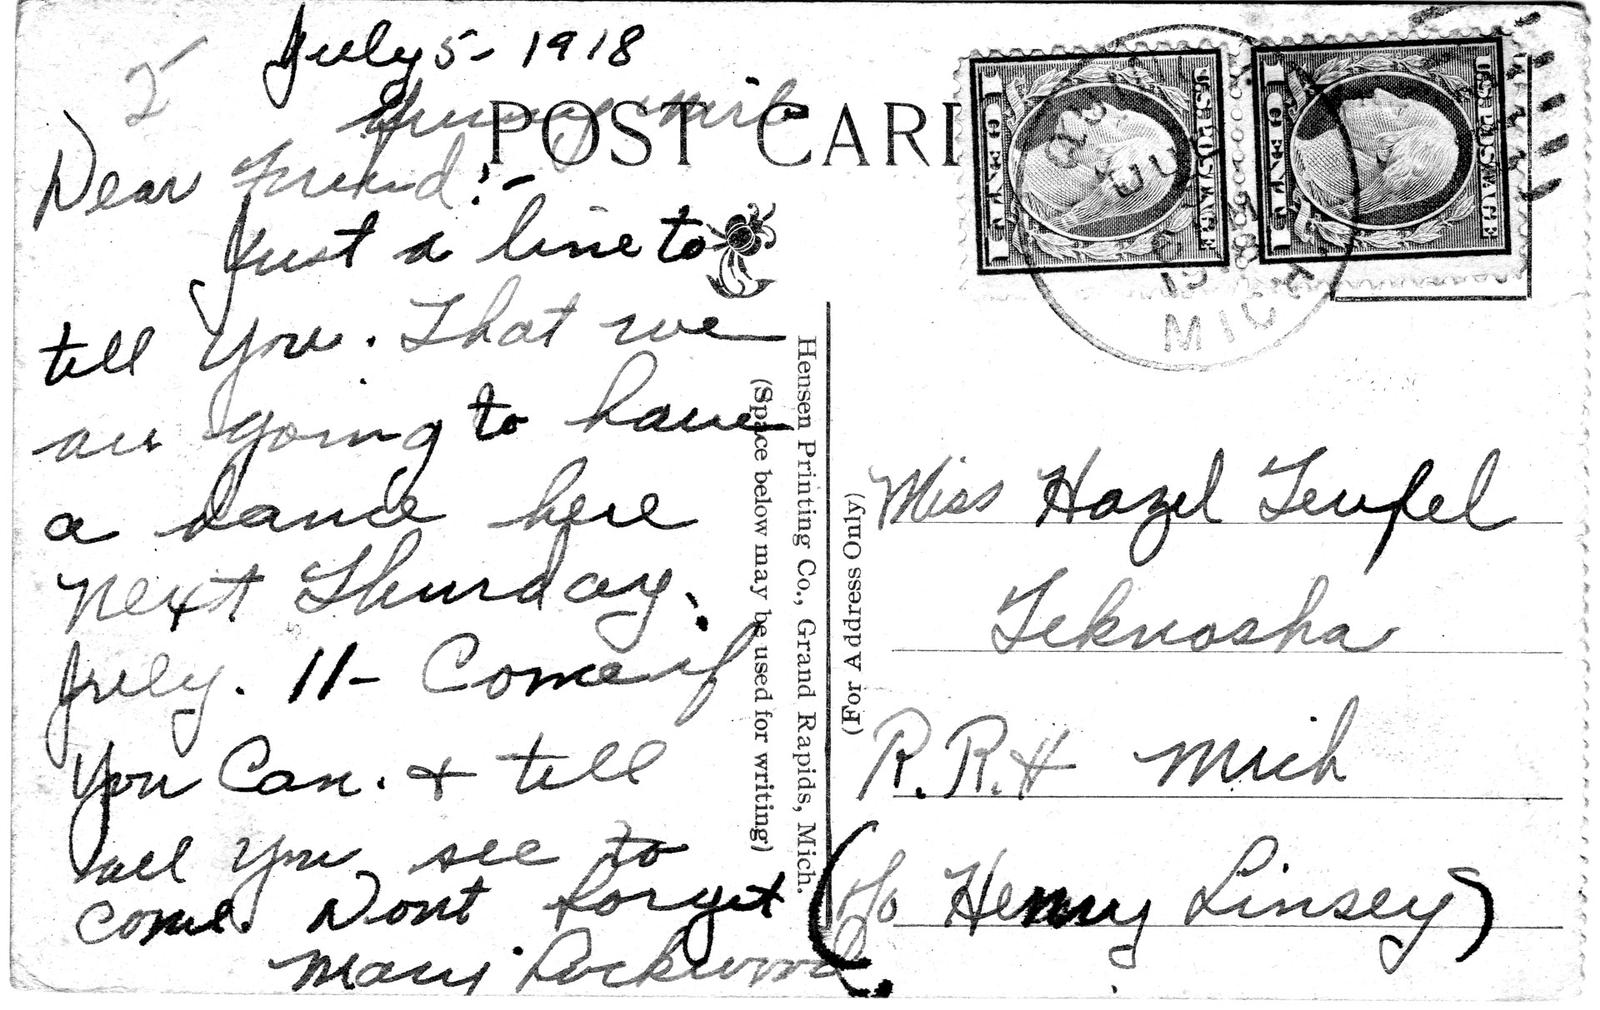 July 5- 1918
2
Mich
POST CAR
Dear Friend!-
Just a line to
tell you. That we
are going to have
a dance here
Next Thursday.
July. 11- Come if
You Can. & tell
all you see to
come. Dont forget
Mary Lockwood.
Hensen Printing Co., Grand Rapids, Mich.
(Space below may be used for writing)
(For Address Only)
1 CENT 1
U.S. POSTAGE
1 CENT 1
U.S. POSTAGE
MICH.
Miss Hazel Teufel
Teknosha
R.R.H Mich
(c/o Henny Linsey)